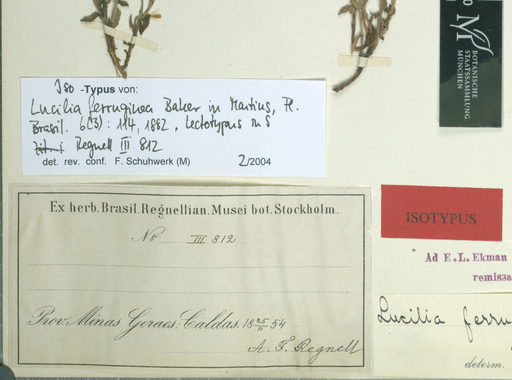 Iso -Typus von:
Lucilia ferruginea Baker in Martius, Fl.
Brasil. 6(3): 114, 1882, Lectotypus in S
Regnell III 812
det. rev. conf. F. Schuhwerk (M) 2/2004
BOTANISCHE
STAATSSAMMLUNG
MÜNCHEN
Ex herb. Brasil. Regnellian. Musei bot. Stockholm.
No III 812
Prov. Minas Geraes: Caldas. 18 25/11 54
A. F. Regnell
ISOTYPUS
Ad E. L. Ekman
remissa
Lucilia ferru
determ.